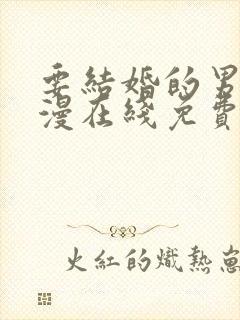 要結婚的男
漫在綫免費
火紅的熾熱